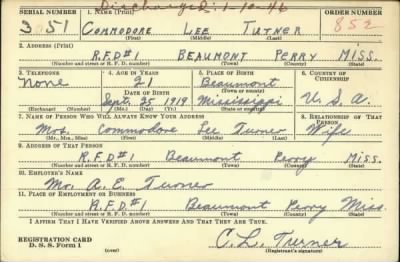 Discharged: 1-10-46
SERIAL NUMBER 1. NAME (Print) ORDER NUMBER
3051 COMMODORE LEE TURNER 852
(First) (Middle) (Last)
2. ADDRESS (Print)
R.F.D#1 BEAUMONT PERRY MISS.
(Number and street or R. F. D. number) (Town) (County) (State)
3. TELEPHONE 4. AGE IN YEARS 5. PLACE OF BIRTH 6. COUNTRY OF CITIZENSHIP
None 21 Beaumont
DATE OF BIRTH (Town or county)
Sept. 25 1919 Mississippi U.S.A.
(Exchange) (Number) (Mo.) (Day) (Yr.) (State or country)
7. NAME OF PERSON WHO WILL ALWAYS KNOW YOUR ADDRESS 8. RELATIONSHIP OF THAT PERSON
Mrs. Commodore Lee Turner Wife
(Mr., Mrs., Miss) (First) (Middle) (Last)
9. ADDRESS OF THAT PERSON
R.F.D#1 Beaumont Perry Miss.
(Number and street or R. F. D. number) (Town) (County) (State)
10. EMPLOYER'S NAME
Mr. A. E. Turner
11. PLACE OF EMPLOYMENT OR BUSINESS
R.F.D#1 Beaumont Perry Miss.
(Number and street or R. F. D. number) (Town) (County) (State)
I AFFIRM THAT I HAVE VERIFIED ABOVE ANSWERS AND THAT THEY ARE TRUE.
REGISTRATION CARD
D. S. S. Form 1 (over) C. L. Turner
(Registrant's signature)